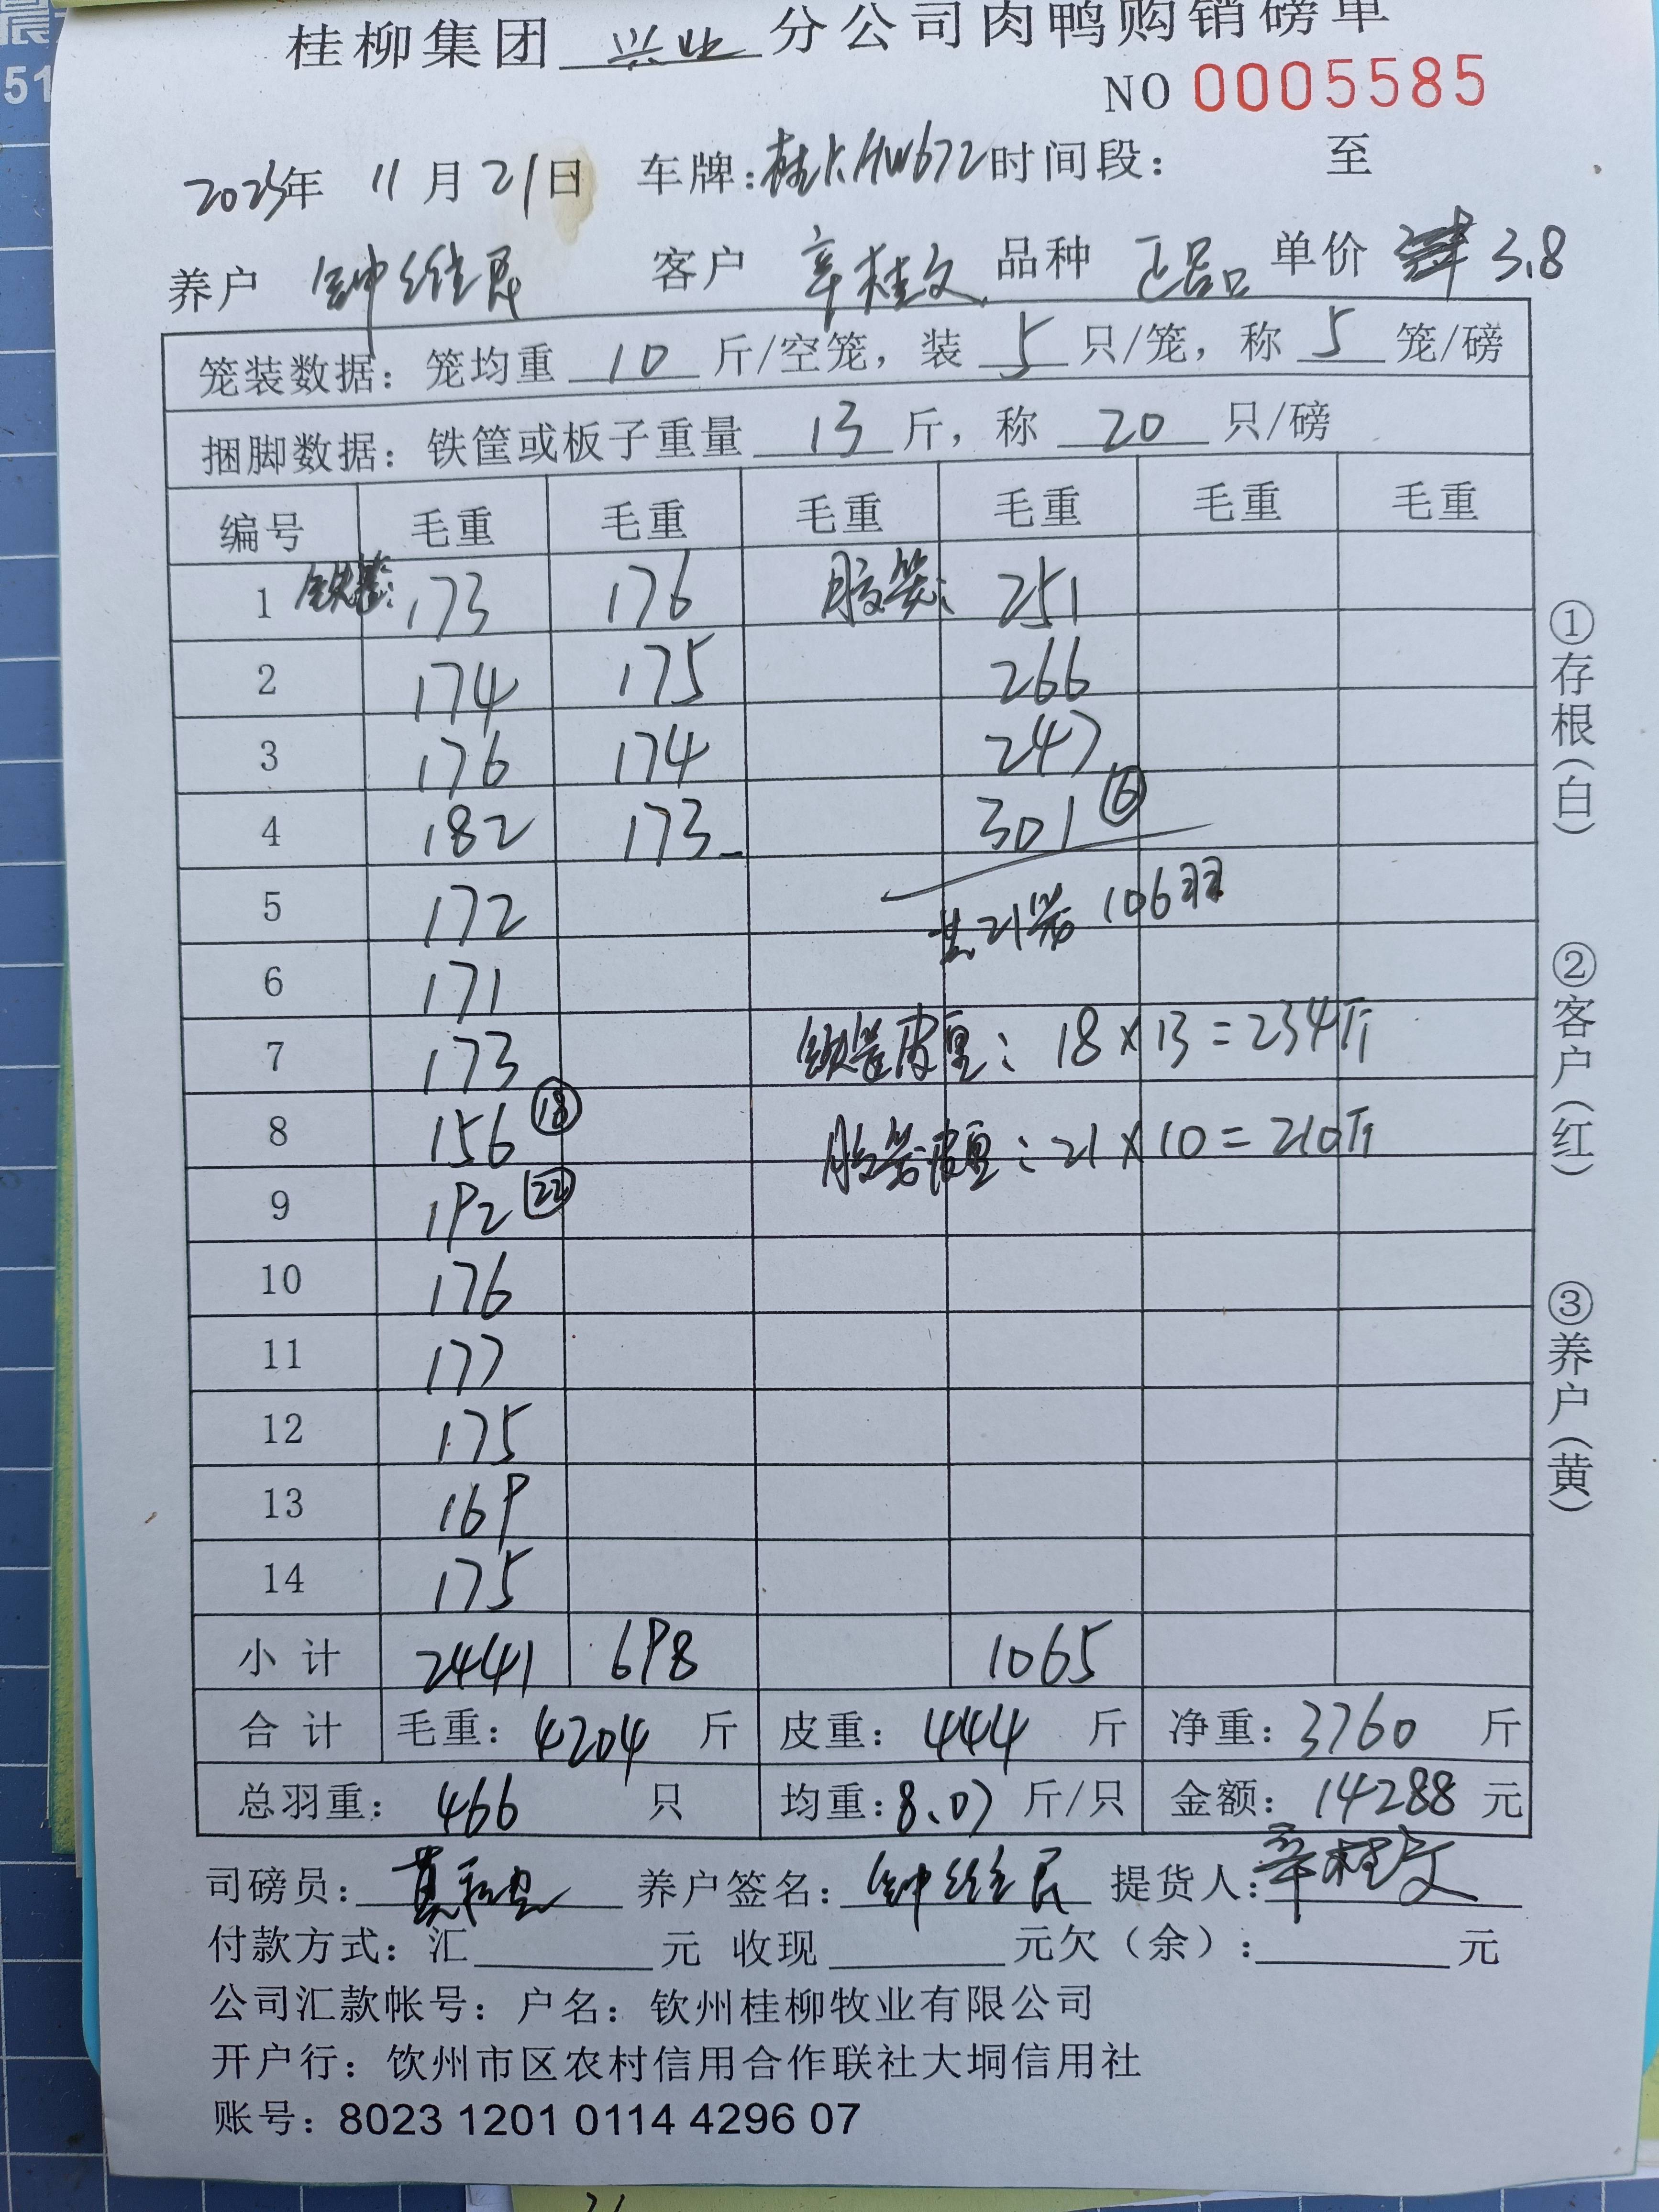 晨
51
桂柳集团 兴业 分公司肉鸭购销磅单
NO 0005585
2023年 11月21日 车牌:桂K HW672 时间段: 至
养户 钟维民 客户 辛桂文 品种 正品 单价 3.8
笼装数据: 笼均重 10 斤/空笼, 装 5 只/笼, 称 5 笼/磅
捆脚数据: 铁筐或板子重量 13 斤, 称 20 只/磅
编号 毛重 毛重 毛重 毛重 毛重 毛重
1 铁筐: 173 176 胶笼: 251
2 174 175 266
3 176 174 247
4 182 173 301 ⑥
5 172 共21笼 106羽
6 171
7 173 铁筐皮重: 18×13=234斤
8 156 ⑱ 胶笼皮重: 21×10=210斤
9 192 ㉒
10 176
11 177
12 175
13 169
14 175
小计 2441 698 1065
合计 毛重: 4204 斤 皮重: 444 斤 净重: 3760 斤
总羽重: 466 只 均重: 8.07 斤/只 金额: 14288 元
司磅员: 养户签名: 钟维民 提货人: 辛桂文
付款方式: 汇 元 收现 元欠(余): 元
公司汇款帐号: 户名: 钦州桂柳牧业有限公司
开户行: 钦州市区农村信用合作联社大垌信用社
账号: 8023 1201 0114 4296 07
①存根(白)
②客户(红)
③养户(黄)